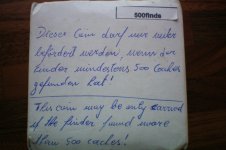 500finds
Dieser Coin darf nur weiter
befördert werden, wenn der
Finder mindestens 500 Caches
gefunden hat!
This coin may be only carried
if the finder found more
than 500 caches!